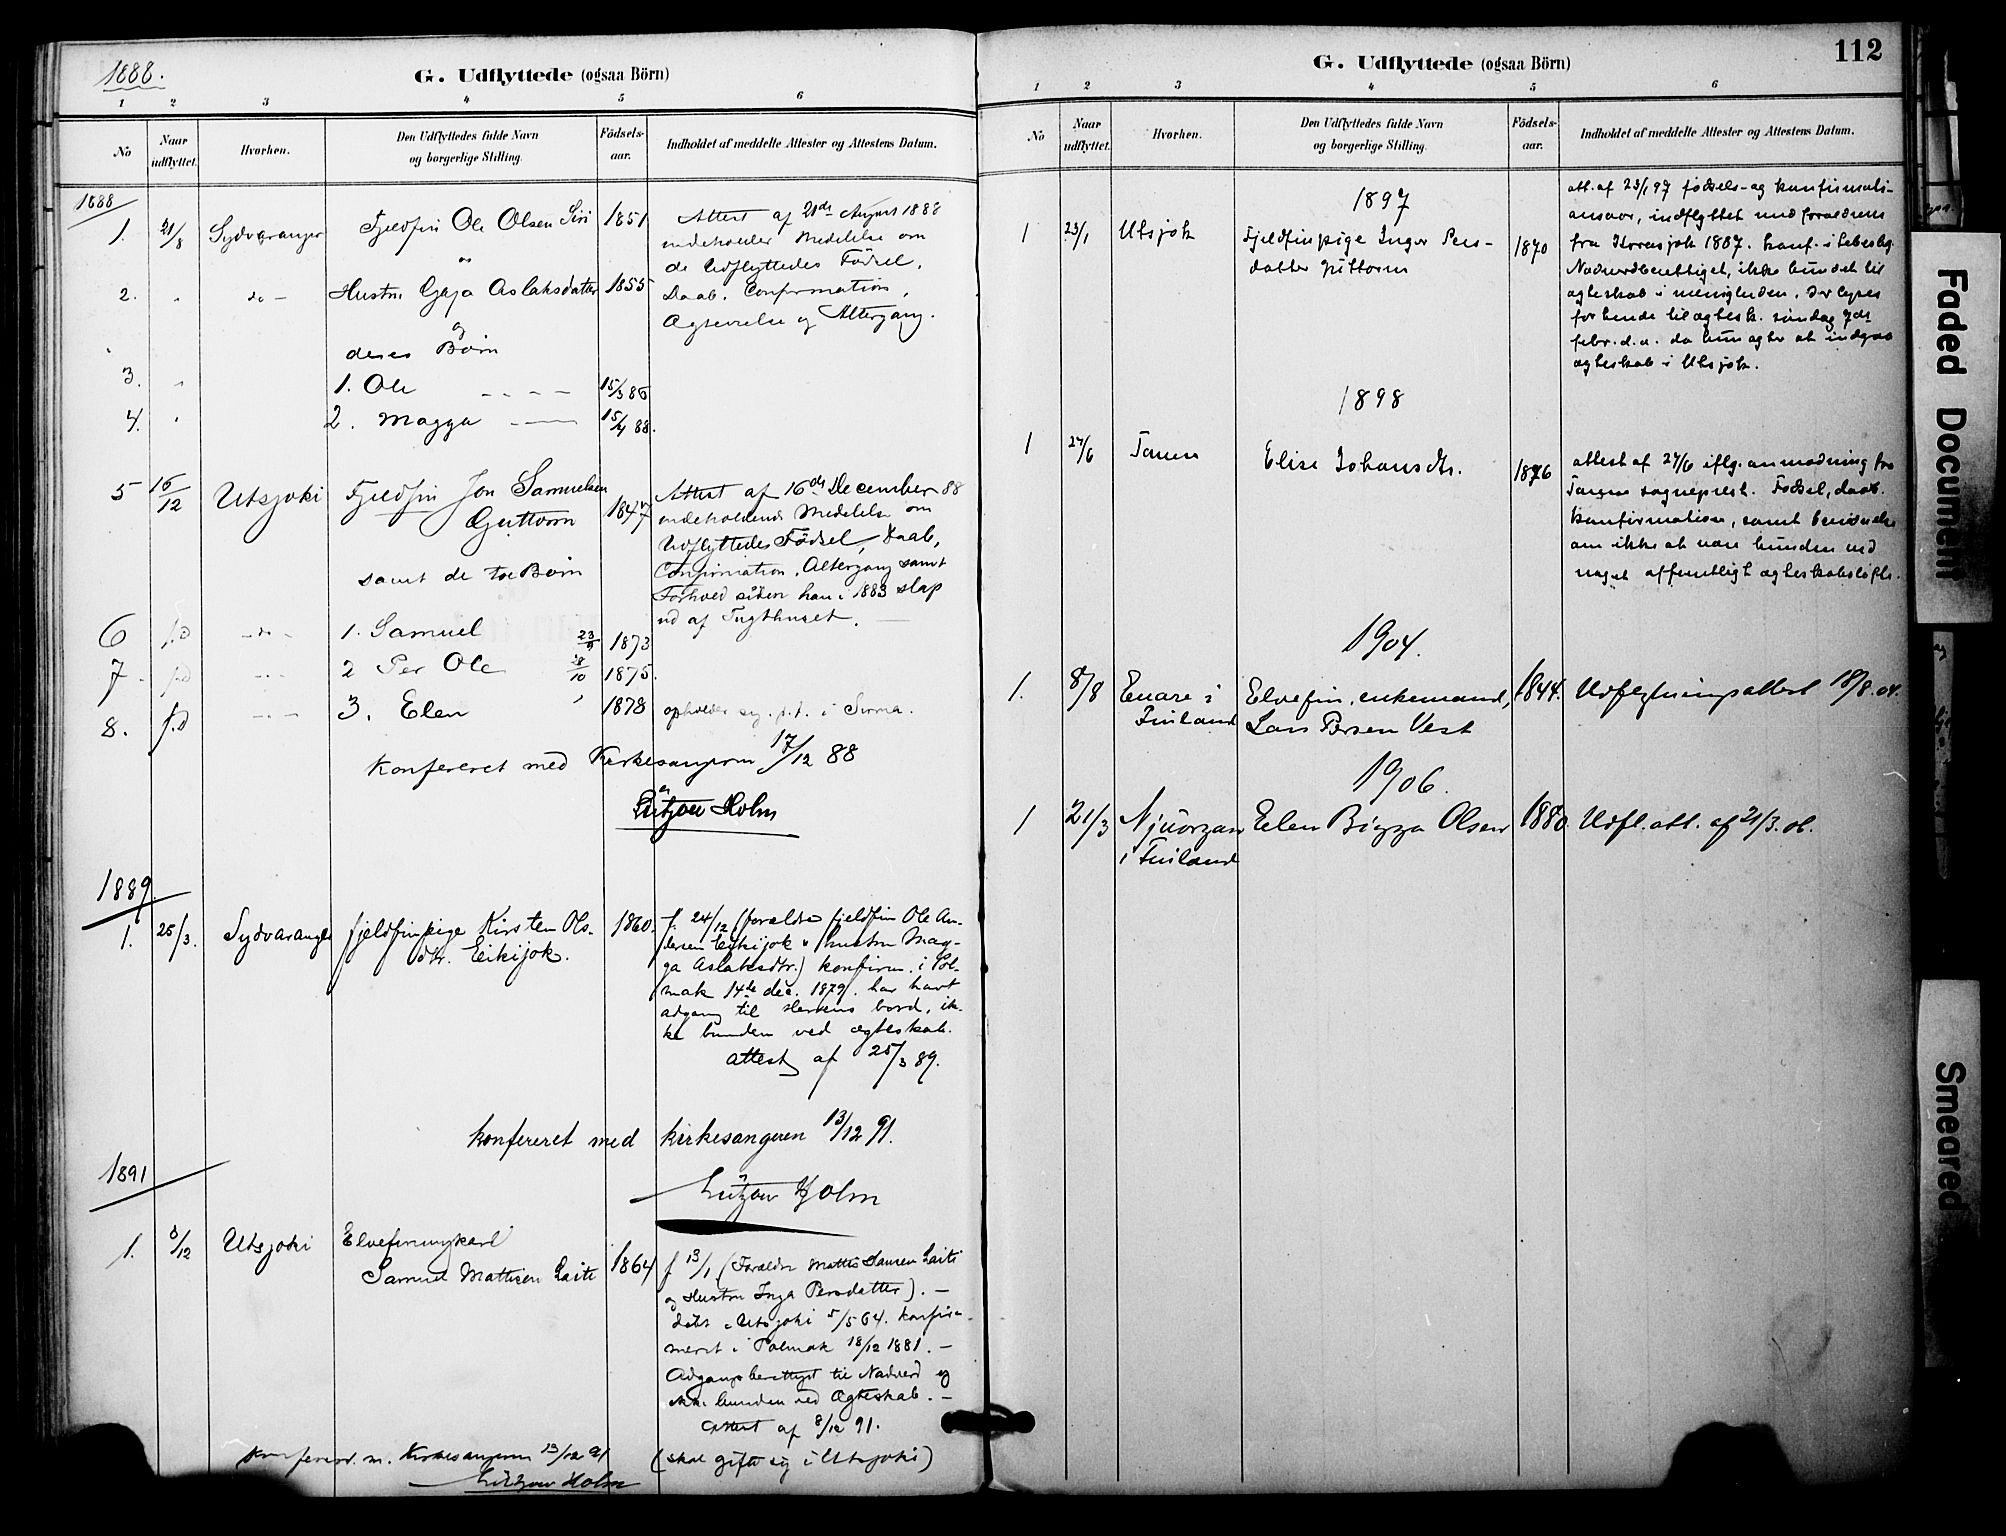 1888.
G. Udflyttede (ogsaa Börn)
1 2 3 4 5 6
No
Naar udflyttet.
Hvorhen.
Den Udflyttedes fulde Navn
og borgerlige Stilling.
Födsels-
aar.
Indholdet af meddelte Attester og Attestens Datum.
1888
1. 21/8 Sydvaranger Fjeldfin Ole Olsen Siri 1851
Attest af 21de August 1888
indeholder Meddelelse om
de Udflyttedes Fødsel,
Daab, Confirmation,
Ægtevielse og Altergang.
og
2. " do - Hustru Gaja Aslaksdatter 1855
og
deres Børn
3. " 1. Ole 15/3 86
4. " 2. Magga 15/4 88.
5 16/12 Utsjoki Fjeldfin Jon Samuelsen 1847
Guttorm
samt de tre Børn
Attest af 16de December 88
indeholdende Meddelelse om
Udflyttedes Fødsel, Daab,
Confirmation, Altergang samt
Forhold siden han i 1883 slap
ud af Tugthuset.
6 s.D - do - 1. Samuel 23/9 1873
7 s.D 2 Per Ole 1875.
8. s.D 3. Elen 1878 opholder sig p.t. i Sirma.
Konfereret med Kirkesangeren 17/12 88
Lützow Holm
1889
1. 25/3. Sydvaranger fjeldfinpige Kirsten Ols- 1860.
dtr. Eikijok.
f. 24/12 (forældre fjeldfin Ole An-
dersen Eikijok & hustru Mag-
ga Aslaksdtr.) konfirm. i Pol-
mak 14de dec. 1879. har havt
adgang til Herrens bord, ik-
ke bunden ved ægteskab.
Attest af 25/3 89.
konfereret med kirkesangeren 13/12 91.
Lützow Holm
1891
1. 8/12 Utsjoki Elvefinungkarl
Samuel Mathisen Laiti 1864
f 13/1 (Forældre Mathis Hansen Laiti
og Hustru Inga Persdatter). -
døbt i Utsjoki 5/5 64. Konfir-
meret i Polmak 18/12 1881. -
Adgangsberettiget til Nadverd og
ikke bunden ved Ægteskab. -
Attest af 8/12 91.
(skal gifte sig i Utsjoki)
Konfereret m. Kirkesangeren 13/12 91
Lützow Holm
112
G. Udflyttede (ogsaa Börn)
1 2 3 4 5 6
No
Naar
udflyttet.
Hvorhen.
Den Udflyttedes fulde Navn
og borgerlige Stilling.
Födsels-
aar.
Indholdet af meddelte Attester og Attestens Datum.
1897
1 23/1 Utsjok Fjeldfinpige Inger Pers- 1870
datter Guttorm
att. af 23/1 97 fødsels- og konfirmati-
onsaar, indflyttet med forældrene
fra Karasjok 1887. konf. i Lebesby.
Nadverdberettiget, ikke bundet til
ægteskab i menigheden. Der lyses
for hende til ægtesk. søndag 7de
febr. d.a. da hun agter at indgaa
ægteskab i Utsjok.
1898
1 27/6 Tanen Elise Johansdtr. 1876
attest af 27/6 iflg. anmodning fra
Tanens sogneprest. Fødsel, daab,
konfirmation, samt bevidnelse
om ikke at være bunden ved
noget offentligt ægteskabsløfte.
1904.
1. 8/8 Enare i Elvefin, enkemand, 1844. Udflytningsattest 18/8.04.
Finland Lars Persen Vest
1906.
1 21/3 Njuorgan Elen Bigga Olsen 1880. Udfl. att. af 21/3.06.
i Finland
Faded Document
Smeared